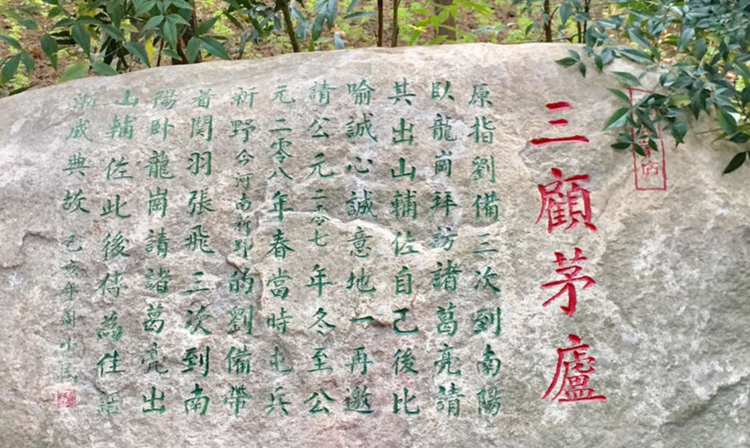 三顧茅廬
原指劉備三次到南陽
臥龍崗拜訪諸葛亮請
其出山輔佐自己後比
喻誠心誠意地一再邀
請公元二零七年冬至公
元二零八年春當時屯兵
新野今河南新野的劉備帶
着関羽張飛三次到南
陽卧龍崗請諸葛亮出
山輔佐此後傳為佳話
漸成典故 己亥年